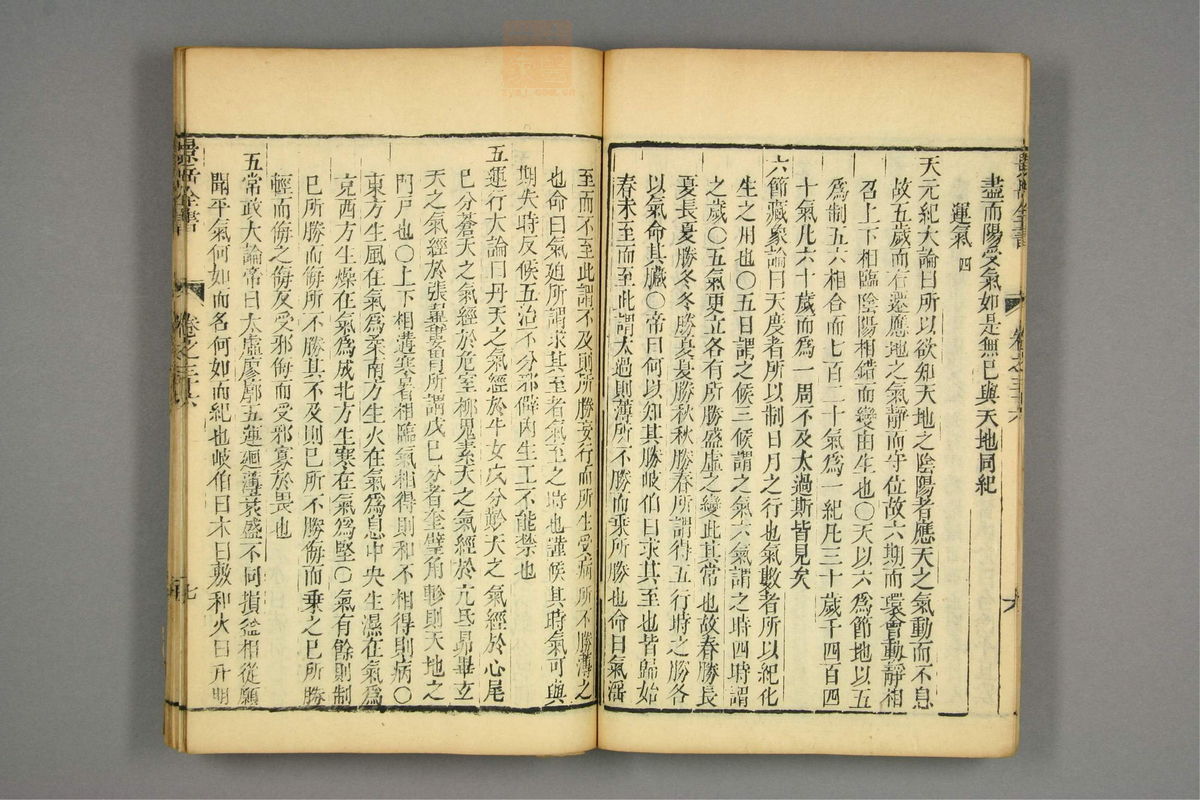 盡而陽受氣如是無已與天地同紀
運氣 四
天元紀大論曰所以欲知天地之陰陽者應天之氣動而不息
故五歲而右遷應地之氣靜而守位故六期而環會動靜相
召上下相臨陰陽相錯而變由生也〇天以六爲節地以五
爲制五六相合而七百二十氣爲一紀凡三十歲千四百四
十氣凡六十歲而爲一周不及太過斯皆見矣
六節藏象論曰天度者所以制日月之行也氣數者所以紀化
生之用也〇五日謂之候三候謂之氣六氣謂之時四時謂
之歲〇五氣更立各有所勝盛虛之變此其常也故春勝長
夏長夏勝冬冬勝夏夏勝秋秋勝春所謂得五行時之勝各
以氣命其臟〇帝曰何以知其勝岐伯曰求其至也皆歸始
春未至而至此謂太過則薄所不勝而乘所勝也命曰氣淫
至而不至此謂不及則所勝妄行而所生受病所不勝薄之
也命曰氣迫所謂求其至者氣至之時也謹候其時氣可與
期失時反候五治不分邪僻內生工不能禁也
五運行大論曰丹天之氣經於牛女戊分黅天之氣經於心尾
巳分蒼天之氣經於危室柳鬼素天之氣經於亢氐昴畢玄
天之氣經於張翼婁胃所謂戊巳分者奎壁角軫則天地之
門戶也〇上下相遘寒暑相臨氣相得則和不相得則病〇
東方生風在氣爲柔南方生火在氣爲息中央生濕在氣爲
克西方生燥在氣爲成北方生寒在氣爲堅〇氣有餘則制
巳所勝而侮所不勝其不及則巳所不勝侮而乗之巳所勝
輕而侮之侮反受邪侮而受邪寡於畏也
五常政大論帝曰太虛廖廓五運廻薄衰盛不同損益相從願
聞平氣何如而名何如而紀也岐伯曰木曰敷和火曰升明
卷之三六
七